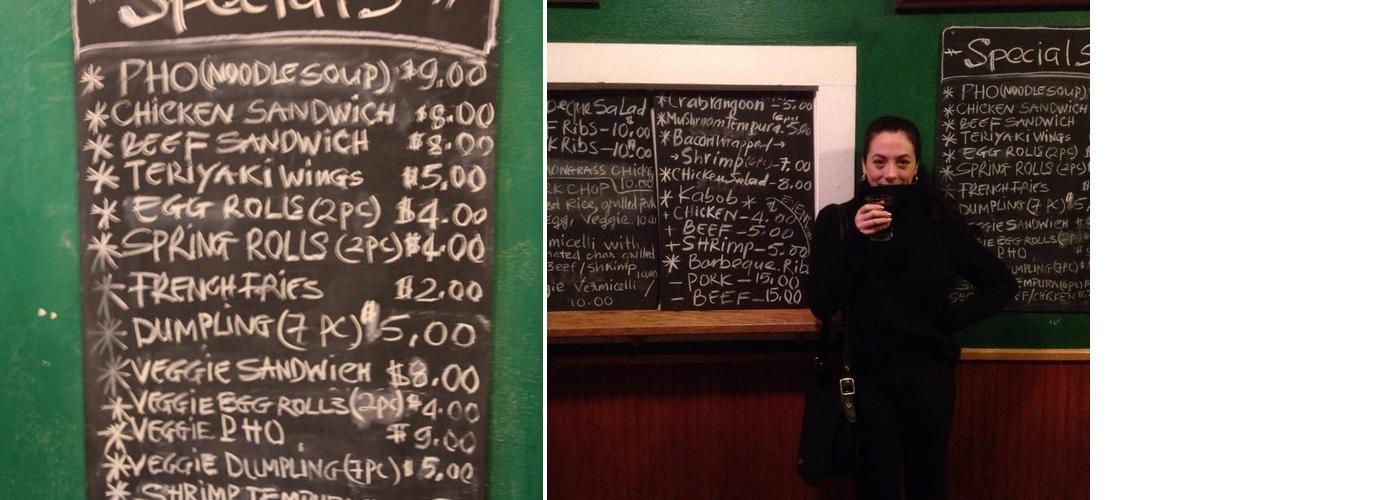 Specials
* PHO(NOODLE SOUP) $9.00
* CHICKEN SANDWICH $8.00
* BEEF SANDWICH $8.00
* TERIYAKI WINGS $5.00
* EGG ROLLS(2PC) $4.00
* SPRING ROLLS (2PC) $4.00
* FRENCH FRIES $2.00
* DUMPLING (7 PC) $5,00
* VEGGIE SANDWICH $8.00
* VEGGIE EGG ROLLS (2PC) $4.00
* VEGGIE PHO $9.00
* VEGGIE DUMPLING(7PC) $5.00
* SHRIMP
Salad
Ribs-10.00
Ribs-10.00
10.00
CHOP
Rice,
Egg, Veggie.
with
Beef/Shrimp
Vermicelli /
10.00
*Crabrangoon -5.00
*Mushroom Tempura. 5.00
*Bacon Wrapped→
→Shrimp -7.00
*Chicken Salad-8.00
* Kabob *
+ CHICKEN-4.00
+ BEEF-5.00
+ SHRimp-5.00
* Barbeque. Rib
- PORK-15.00
- BEEF-15.00
* Specials
* PHO(NOODLE SOUP)
* CHICKEN SANDWICH
* BEEF SANDWICH
* TERIYAKI WINGS
* EGG ROLLS(2PC)
* SPRING ROLLS(2PC)
* FRENCH FRIES
DUMPLING (7PC) $5,
SANDWICH
EGG ROLLS
PHO